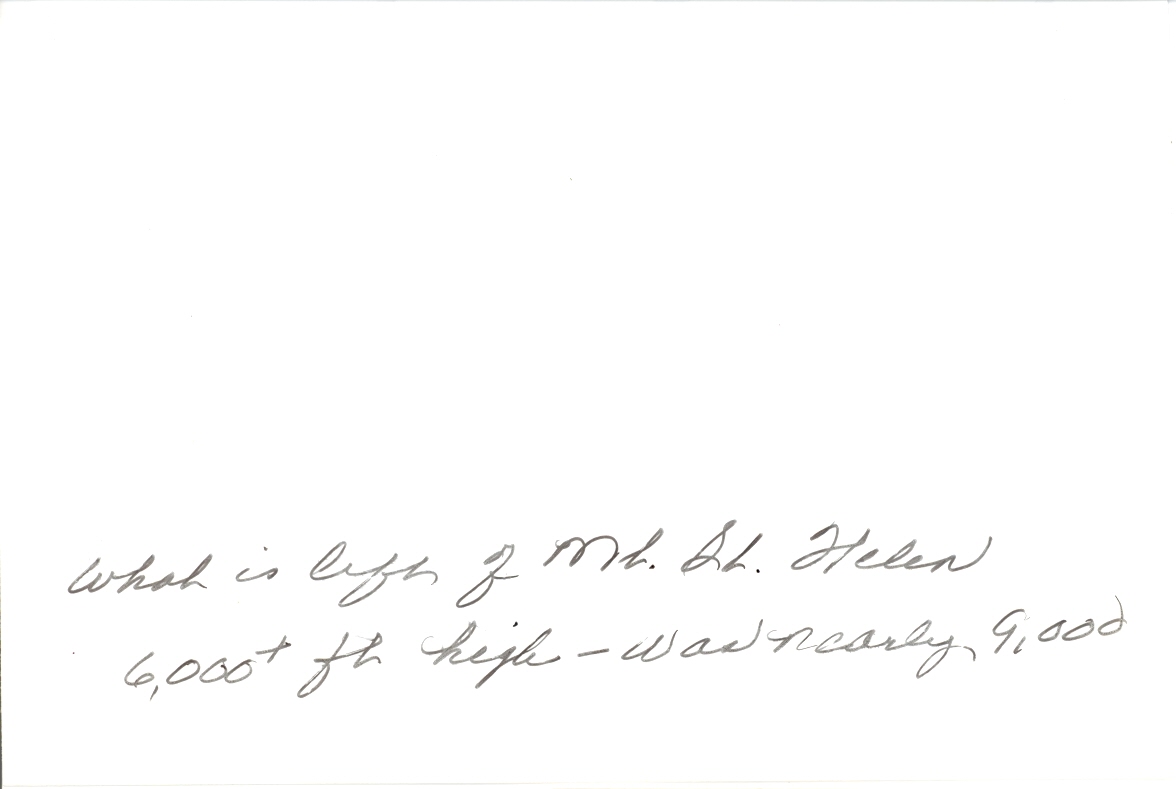 What is left of Mt. St. Helen
6,000+ ft high – was nearly 9,000